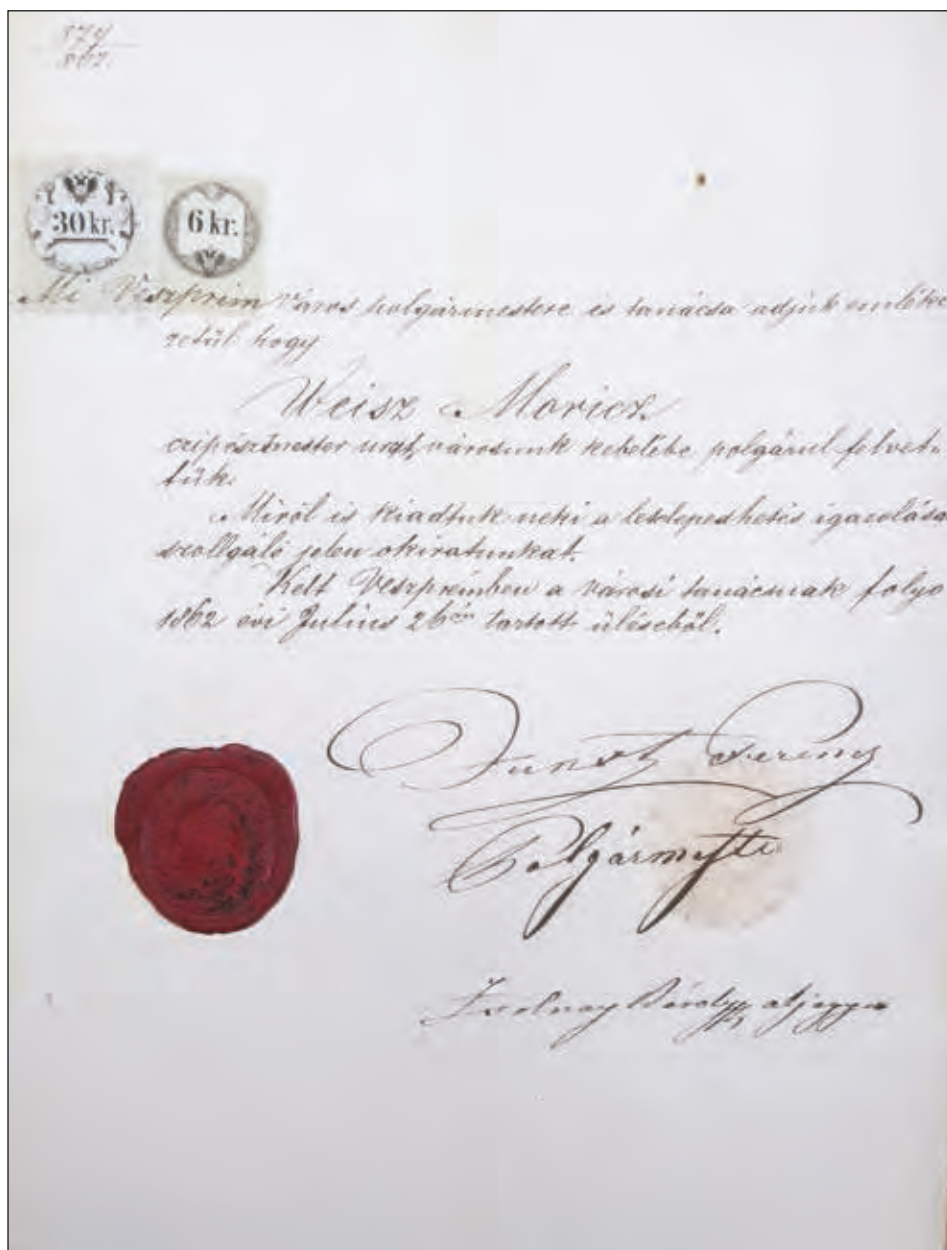 30 kr. 6 kr.
Mi Veszprém Város polgármestere és tanácsa adjuk emléke-
zetül hogy
Weisz Moricz
czipészmester urat, városunk kebelébe polgárul felvet-
tük.
Miről is kiadtuk neki a letelepedhetés igazolásá
szollgáló jelen okiratunkat.
Kelt Veszprémben a városi tanácsnak folyo
1862 évi Julius 26án tartott üléséből.
Ferencz
Polgármeste
Károly aljegyző